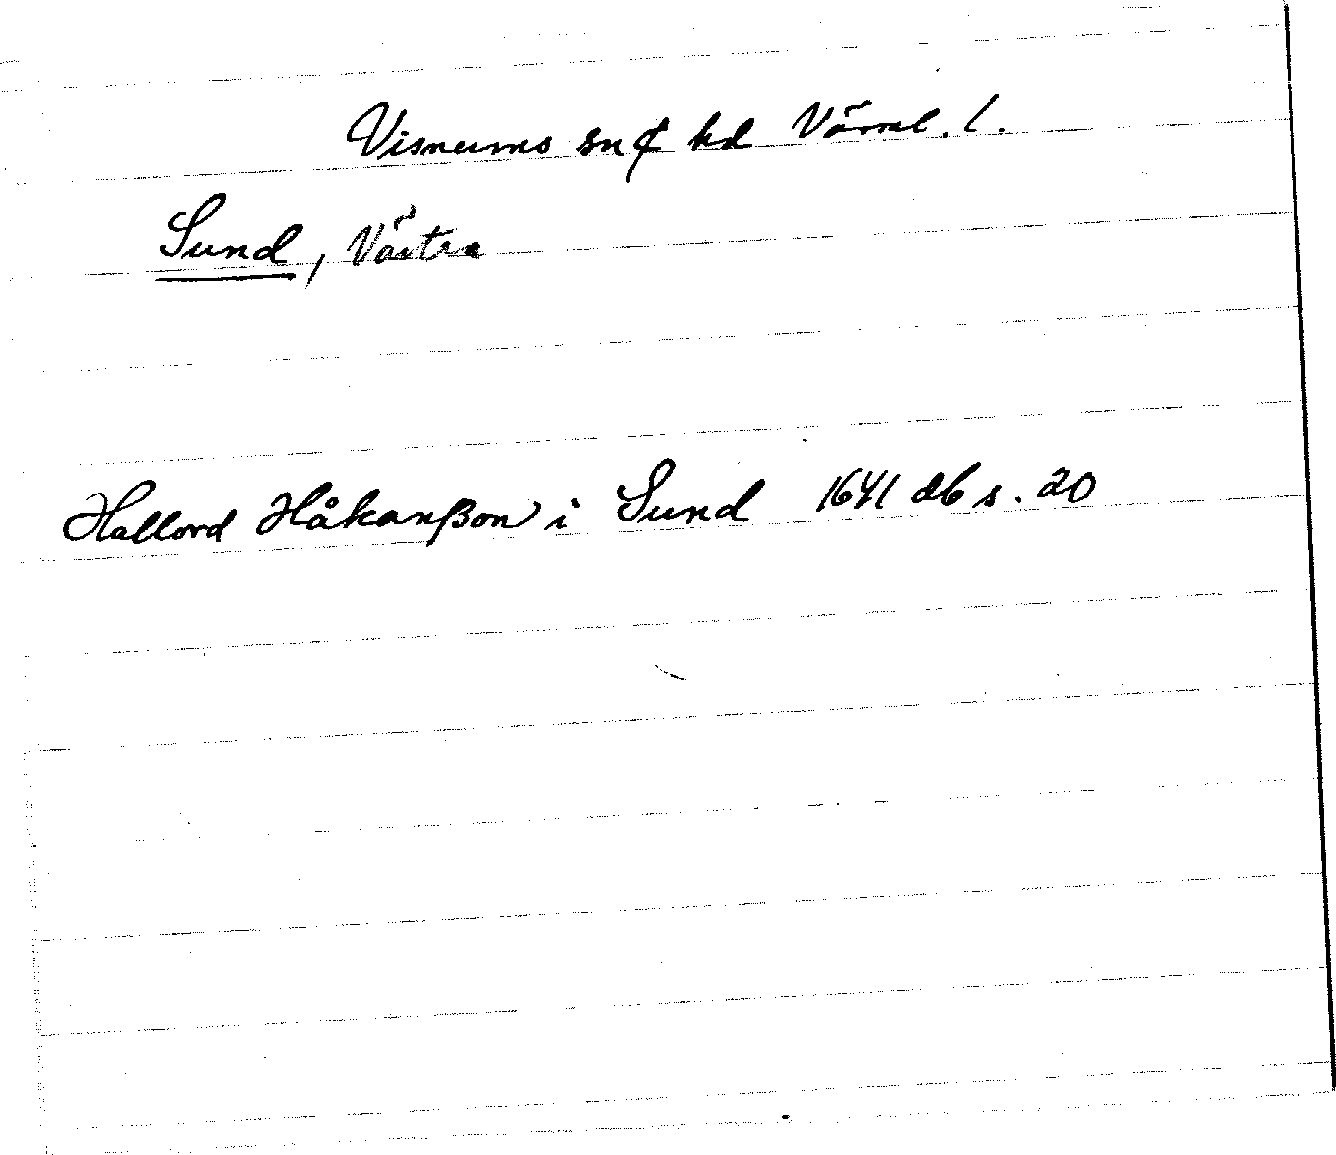 Visnums sn ₵ hd Värml. l.
Sund, Västra
Hallord Håkanßon i Sund 1641 db s. 20